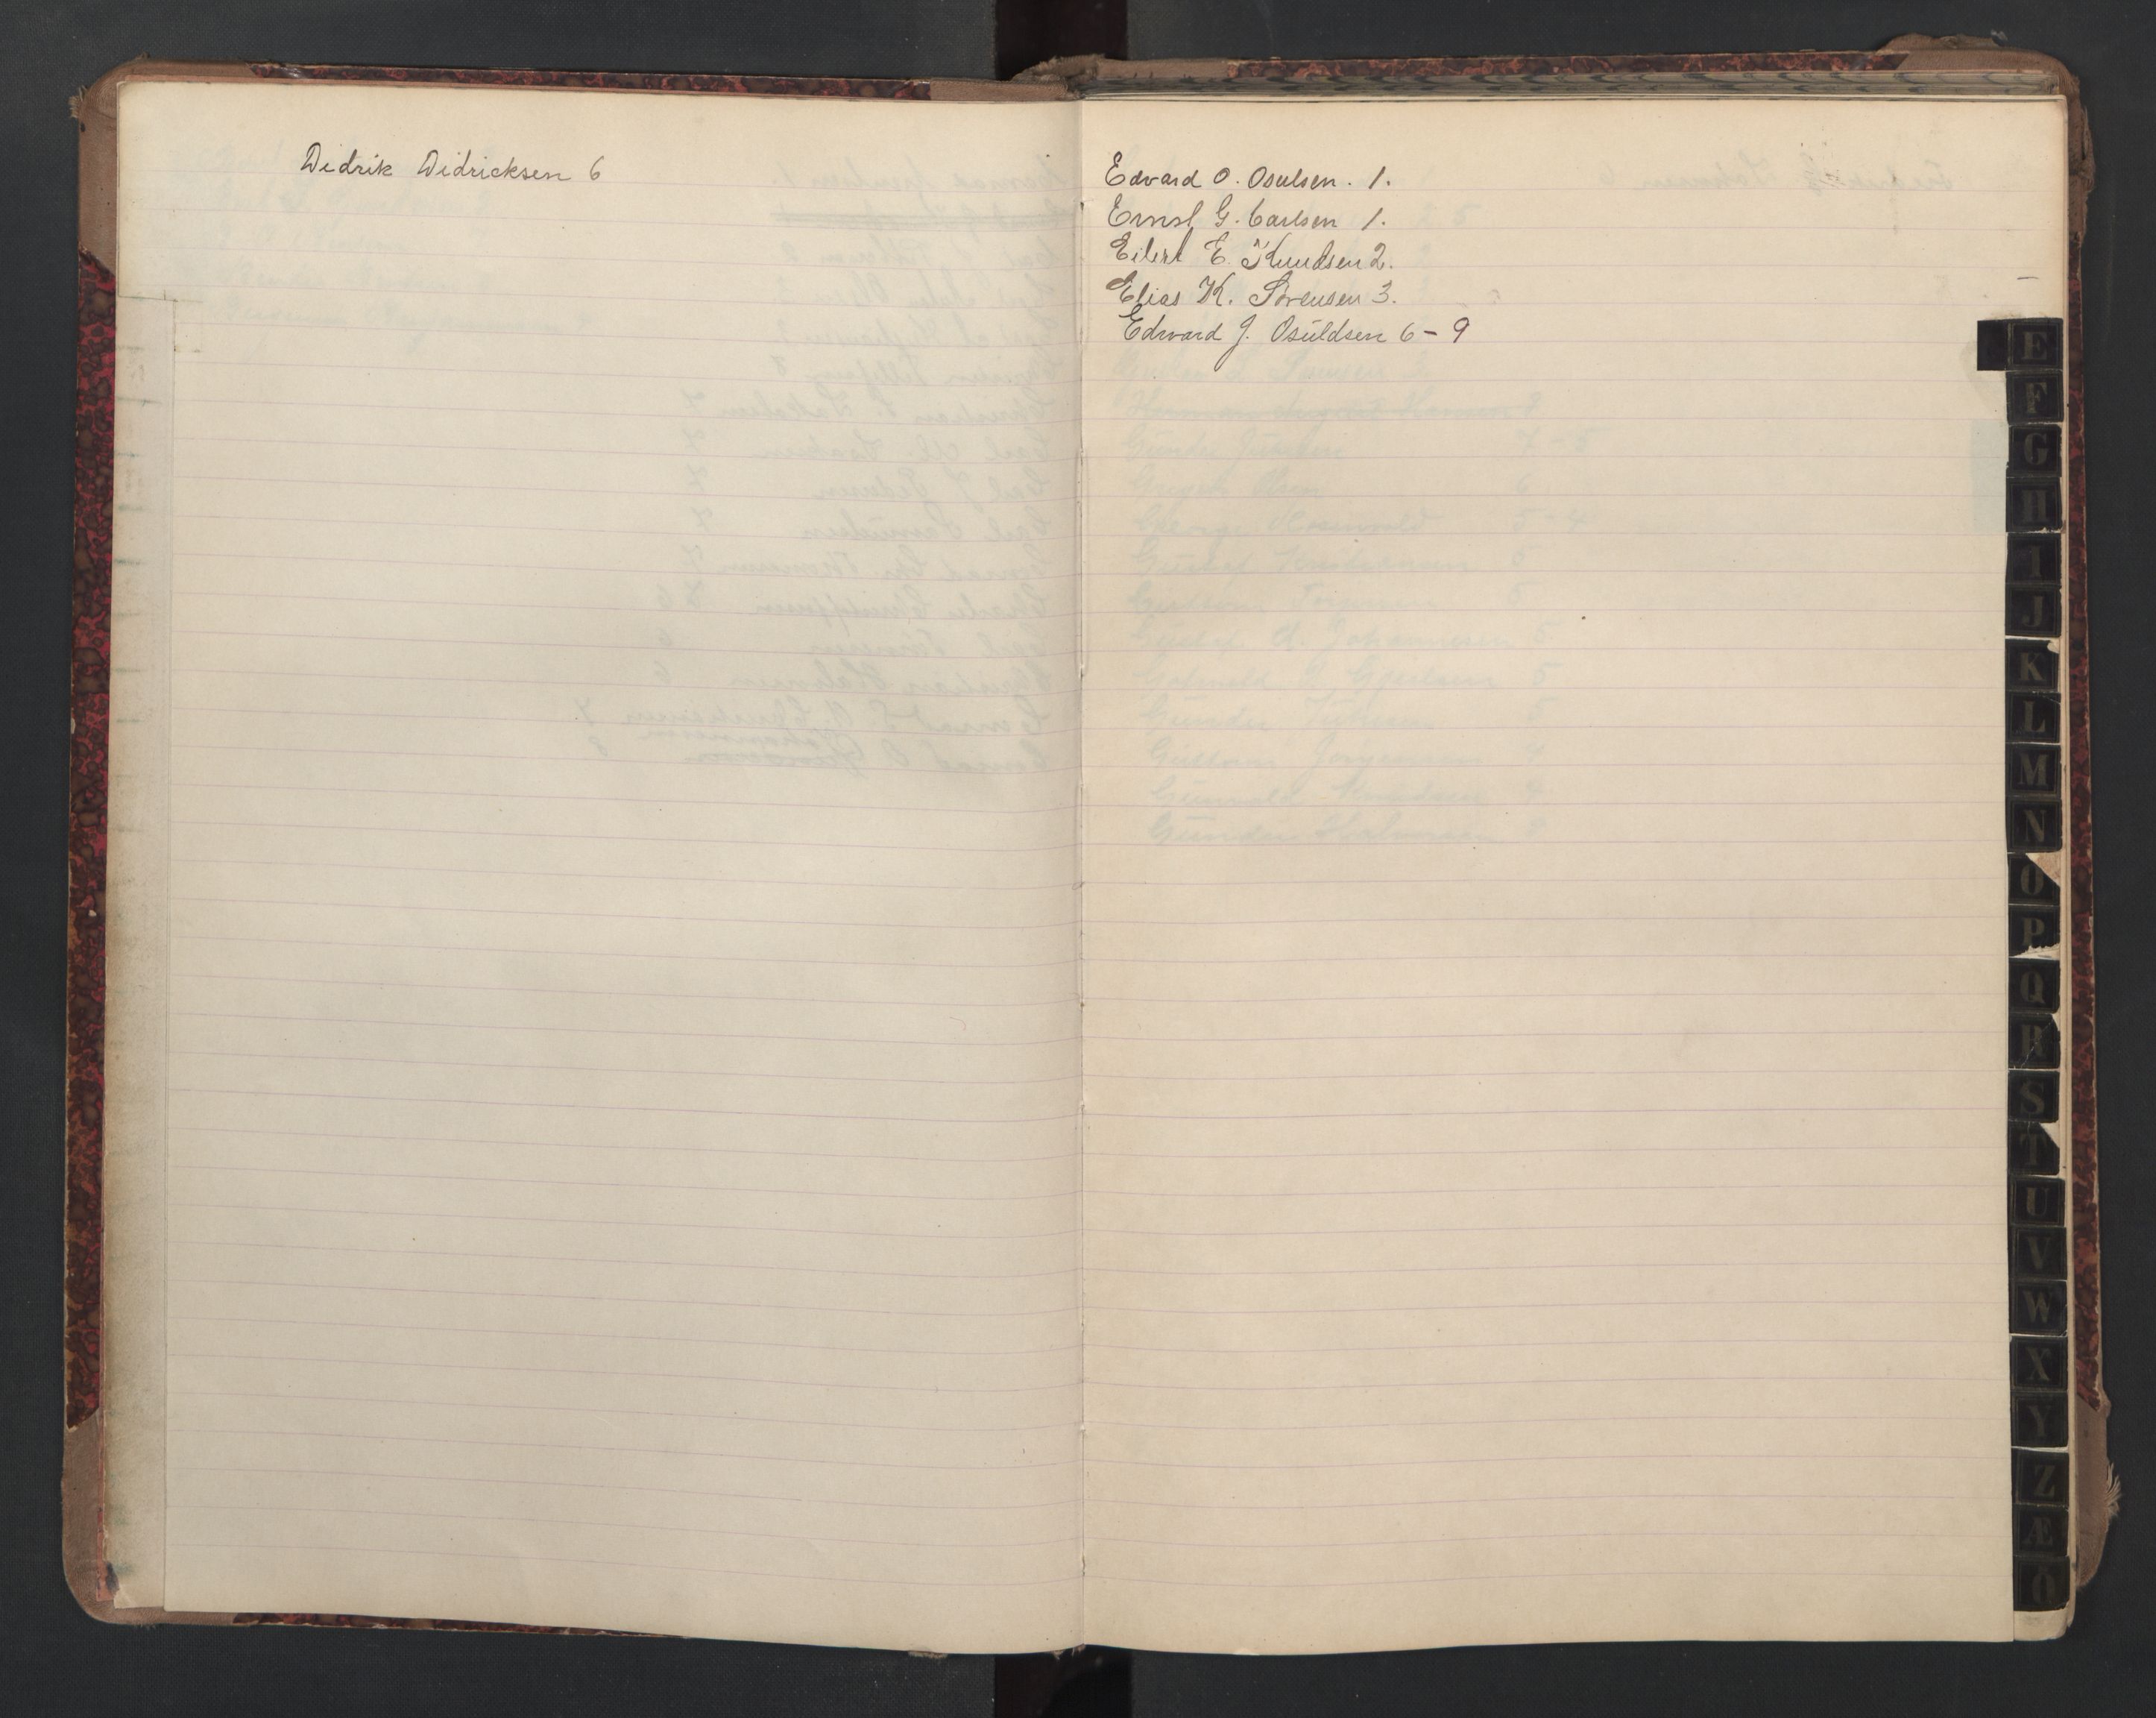 Didrik Didricksen 6
Edvard O. Osulsen. 1.
Ernst G. Carlsen 1.
Eilert E. Knudsen 2.
Elias K. Sørensen 3.
Edward J. Osuldsen 6 - 9
E
F
G
H
I
J
K
L
M
N
O
P
Q
R
S
T
U
V
W
X
Y
Z
Æ
Ö